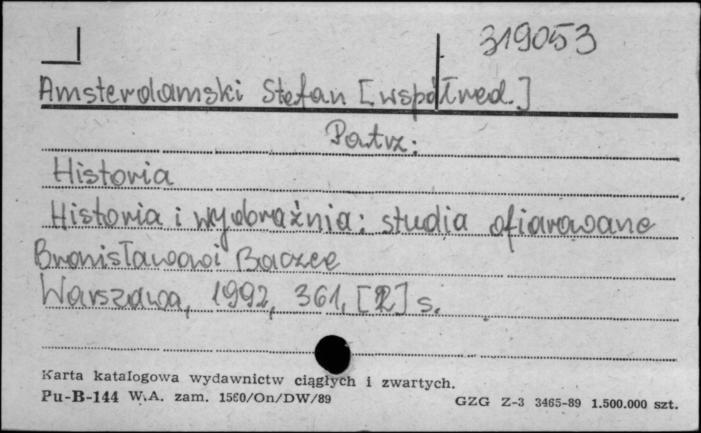 319053
Amsterdamski Stefan [współred.]
Patrz:
Historia
Historia i wyobraźnia: studia ofiarowane
Bronisławowi Baczce
Warszawa, 1992, 361, [2] s.
Karta katalogowa wydawnictw ciągłych i zwartych.
Pu-B-144 W.A. zam. 1560/On/DW/89 GZG Z-3 3465-89 1.500.000 szt.